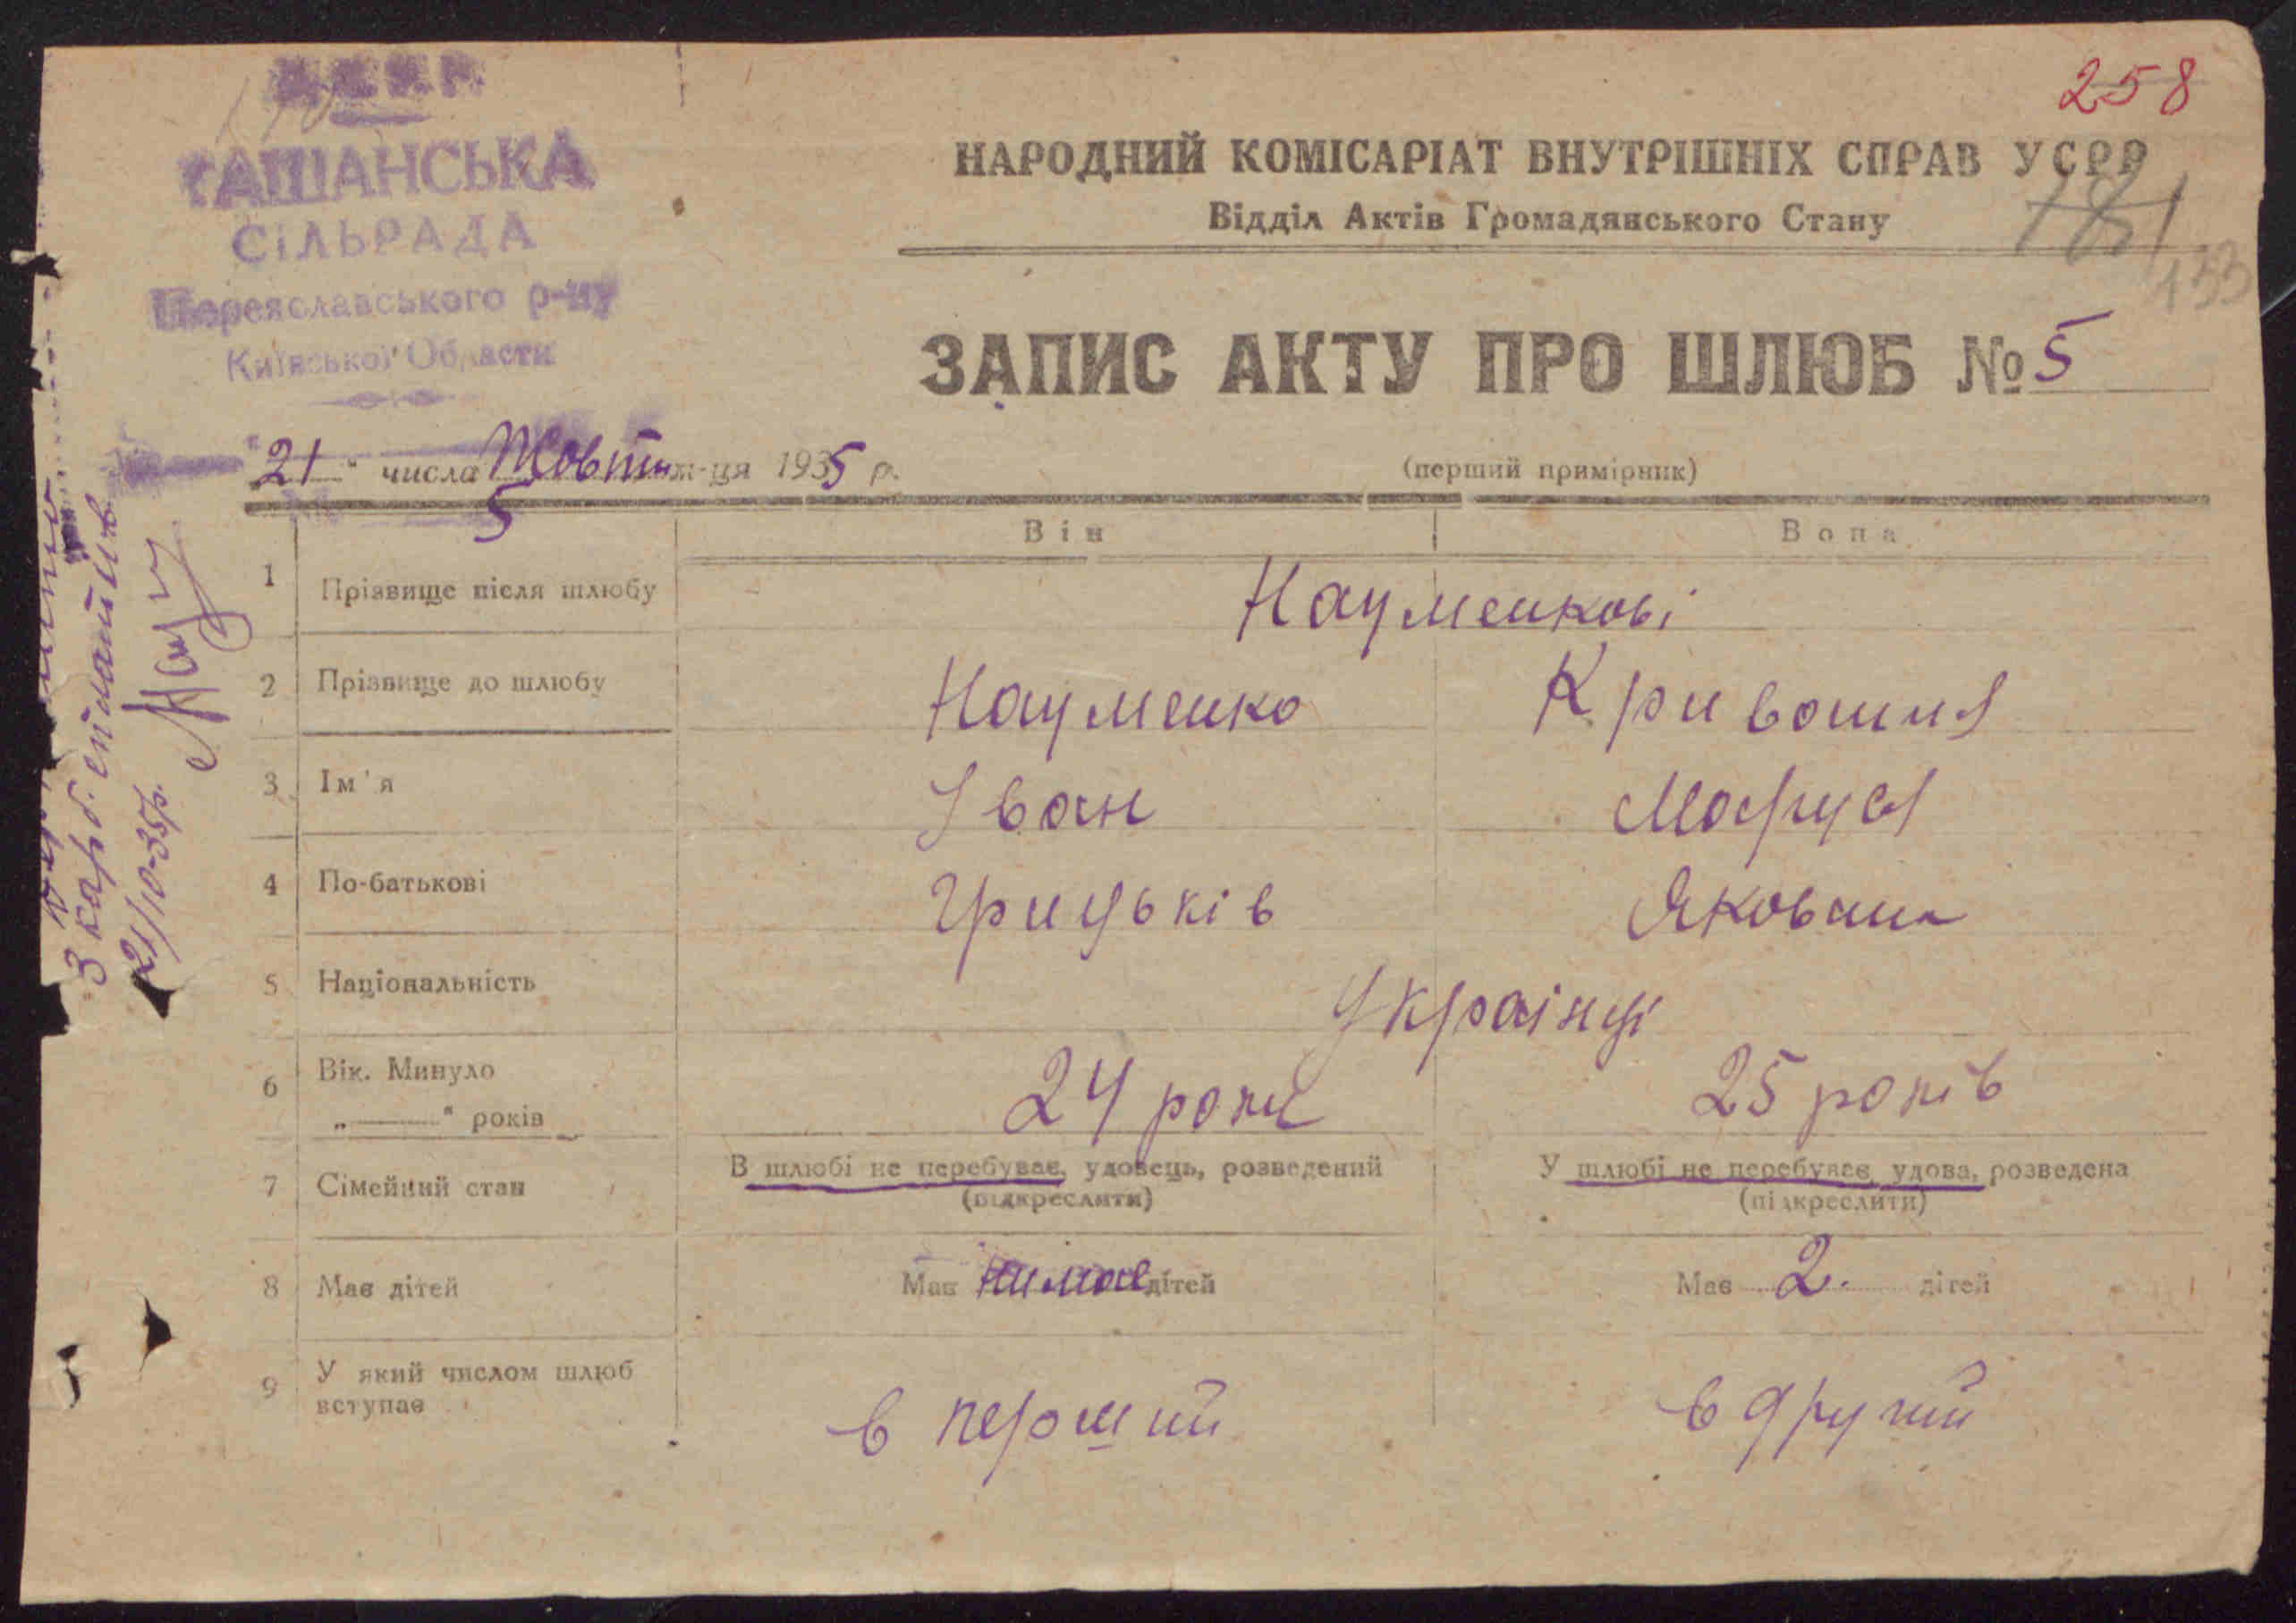 258
ТАШАНСЬКА
СІЛЬРАДА
Переяславського р-ну
Київської Области
НАРОДНИЙ КОМІСАРІАТ ВНУТРІШНІХ СПРАВ УСРР
Відділ Актів Громадянського Стану
181
133
ЗАПИС АКТУ ПРО ШЛЮБ № 5
"21" числа Жовтня м-ця 1935 р.
(перший примірник)
5
Він Вона
1 Прізвище після шлюбу Науменкові
2 Прізвище до шлюбу Науменко Кривошия
3 Ім'я Іван Маруся
4 По-батькові Грицьків Яковлна
5 Національність Українці
6 Вік. Минуло
„——" років 24 роки 25 років
7 Сімейний стан В шлюбі не перебуває, удовець, розведений У шлюбі не перебуває, удова, розведена
(підкреслити) (підкреслити)
8 Має дітей Має нимає дітей Має 2. дітей
9 У який числом шлюб
вступає в перший в другий
3 карб.
21/10-35р.